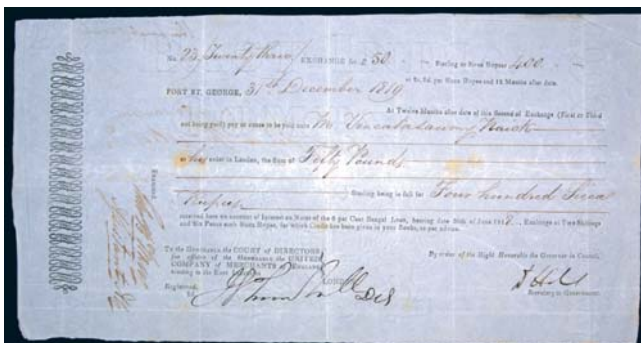 No. 23, Twenty three / EXCHANGE for £ 50. — Sterling or Sicca Rupees 400. —
at 2s. 6d. per Sicca Rupee and 12 Months after date.
FORT ST. GEORGE, 31st December 1819
At Twelve Months after date of this Second of Exchange (First or Third
not being paid) pay or cause to be paid unto Mr. Vencatasawmy Naick
or order in London, the Sum of Fifty Pounds
Sterling being in full for Four hundred Sicca
Rupees
received here on account of Interest on Notes of the 6 per Cent Bengal Loan, bearing date 30th of June Exchange at Two Shillings
and Six Pence each Sicca Rupee, for which Credit has been given in your Books, as per advice.
To the Honorable the COURT of DIRECTORS
for affairs of the Honorable the UNITED
COMPANY of MERCHANTS of ENGLAND
trading to the East Indies,
LONDON
By order of the Right Honorable the Governor in Council,
Registered,
Secretary to Government.
Examined